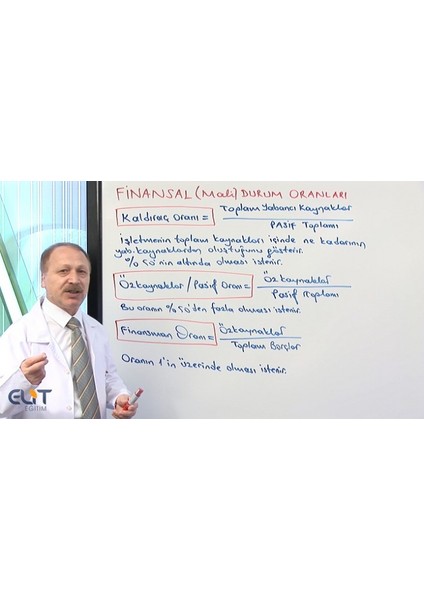 FİNANSAL (Mali) DURUM ORANLARI
Kaldıraç Oranı = Toplam Yabancı Kaynaklar / PASİF Toplamı
İşletmenin toplam kaynakları içinde ne kadarının
yab. kaynaklardan oluştuğunu gösterir.
% 50'nin altında olması istenir.
Özkaynaklar / Pasif Oranı = Özkaynaklar / Pasif Toplamı
Bu oranın % 50'den fazla olması istenir.
Finansman Oranı = Özkaynaklar / Toplam Borçlar
Oranın 1'in üzerinde olması istenir.
ELİT
EĞİTİM